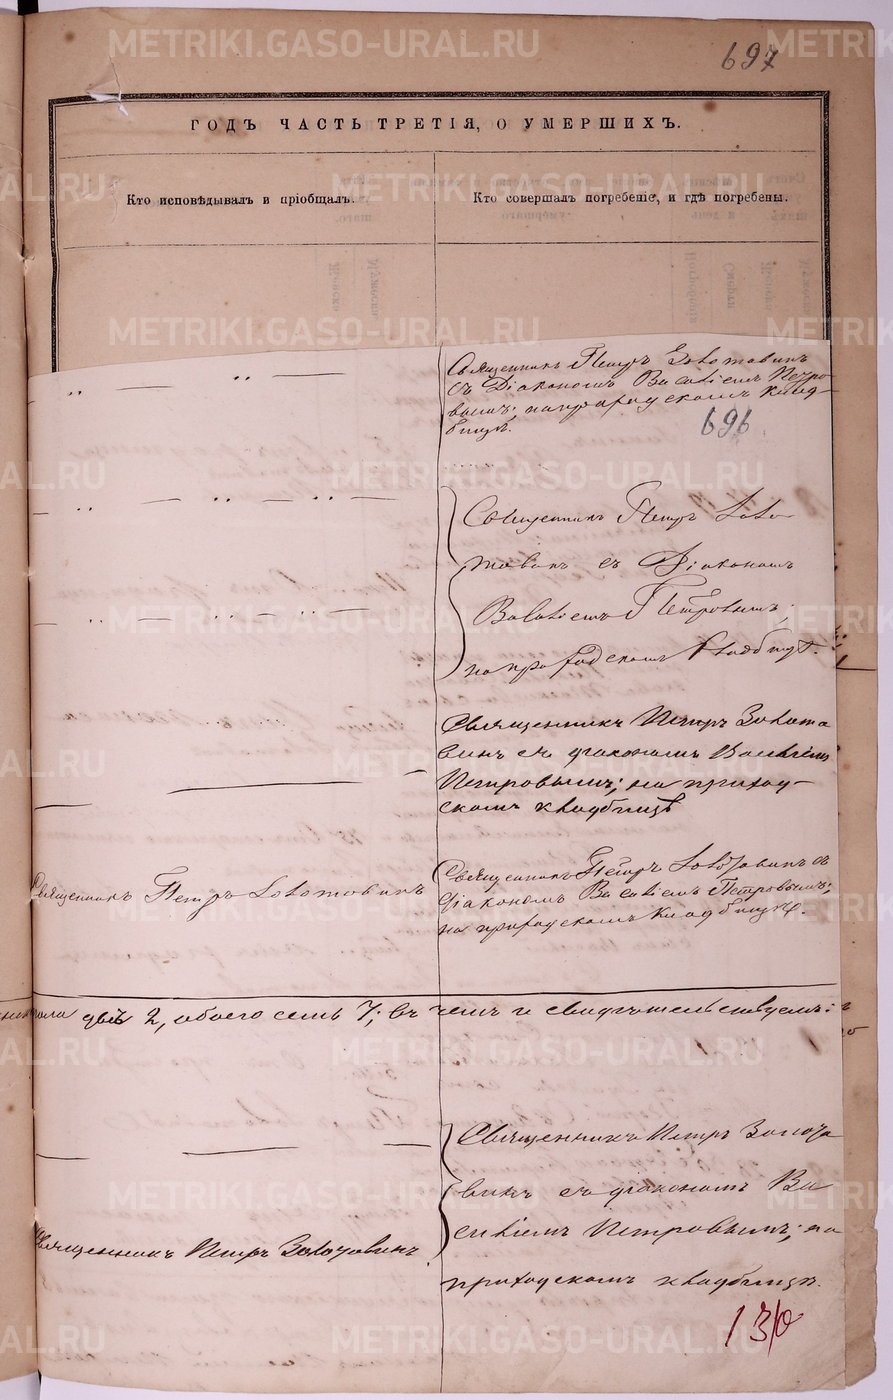 METRIKI.GASO-URAL.RU
697
ГОДЪ ЧАСТЬ ТРЕТІЯ, О УМЕРШИХЪ.
Кто исповѣдывалъ и пріобщалъ.
Кто совершалъ погребеніе, и гдѣ погребены.
Священникъ Петръ Золотовинъ
съ Діакономъ Василіемъ Петро
вымъ; на приходскомъ клад-
бищѣ.
696
Священникъ Петръ Золо-
товинъ съ Діакономъ
Василіемъ Петровымъ;
на приходскомъ кладбищѣ.
Священникъ Петръ Золото
винъ съ діакономъ Василіемъ
Петровымъ; на приход-
скомъ кладбищѣ
Священникъ Петръ Золотовинъ
Священникъ Петръ Золотовинъ съ
Діакономъ Василіемъ Петровымъ;
на приходскомъ кладбищѣ.
пола двѣ 2, обоего семь 7; въ чемъ и свидѣтельствуемъ:
Священникъ Петръ Золото
винъ съ діакономъ Ва
силіемъ Петровымъ; на
приходскомъ кладбищѣ.
Священникъ Петръ Золотовинъ
130